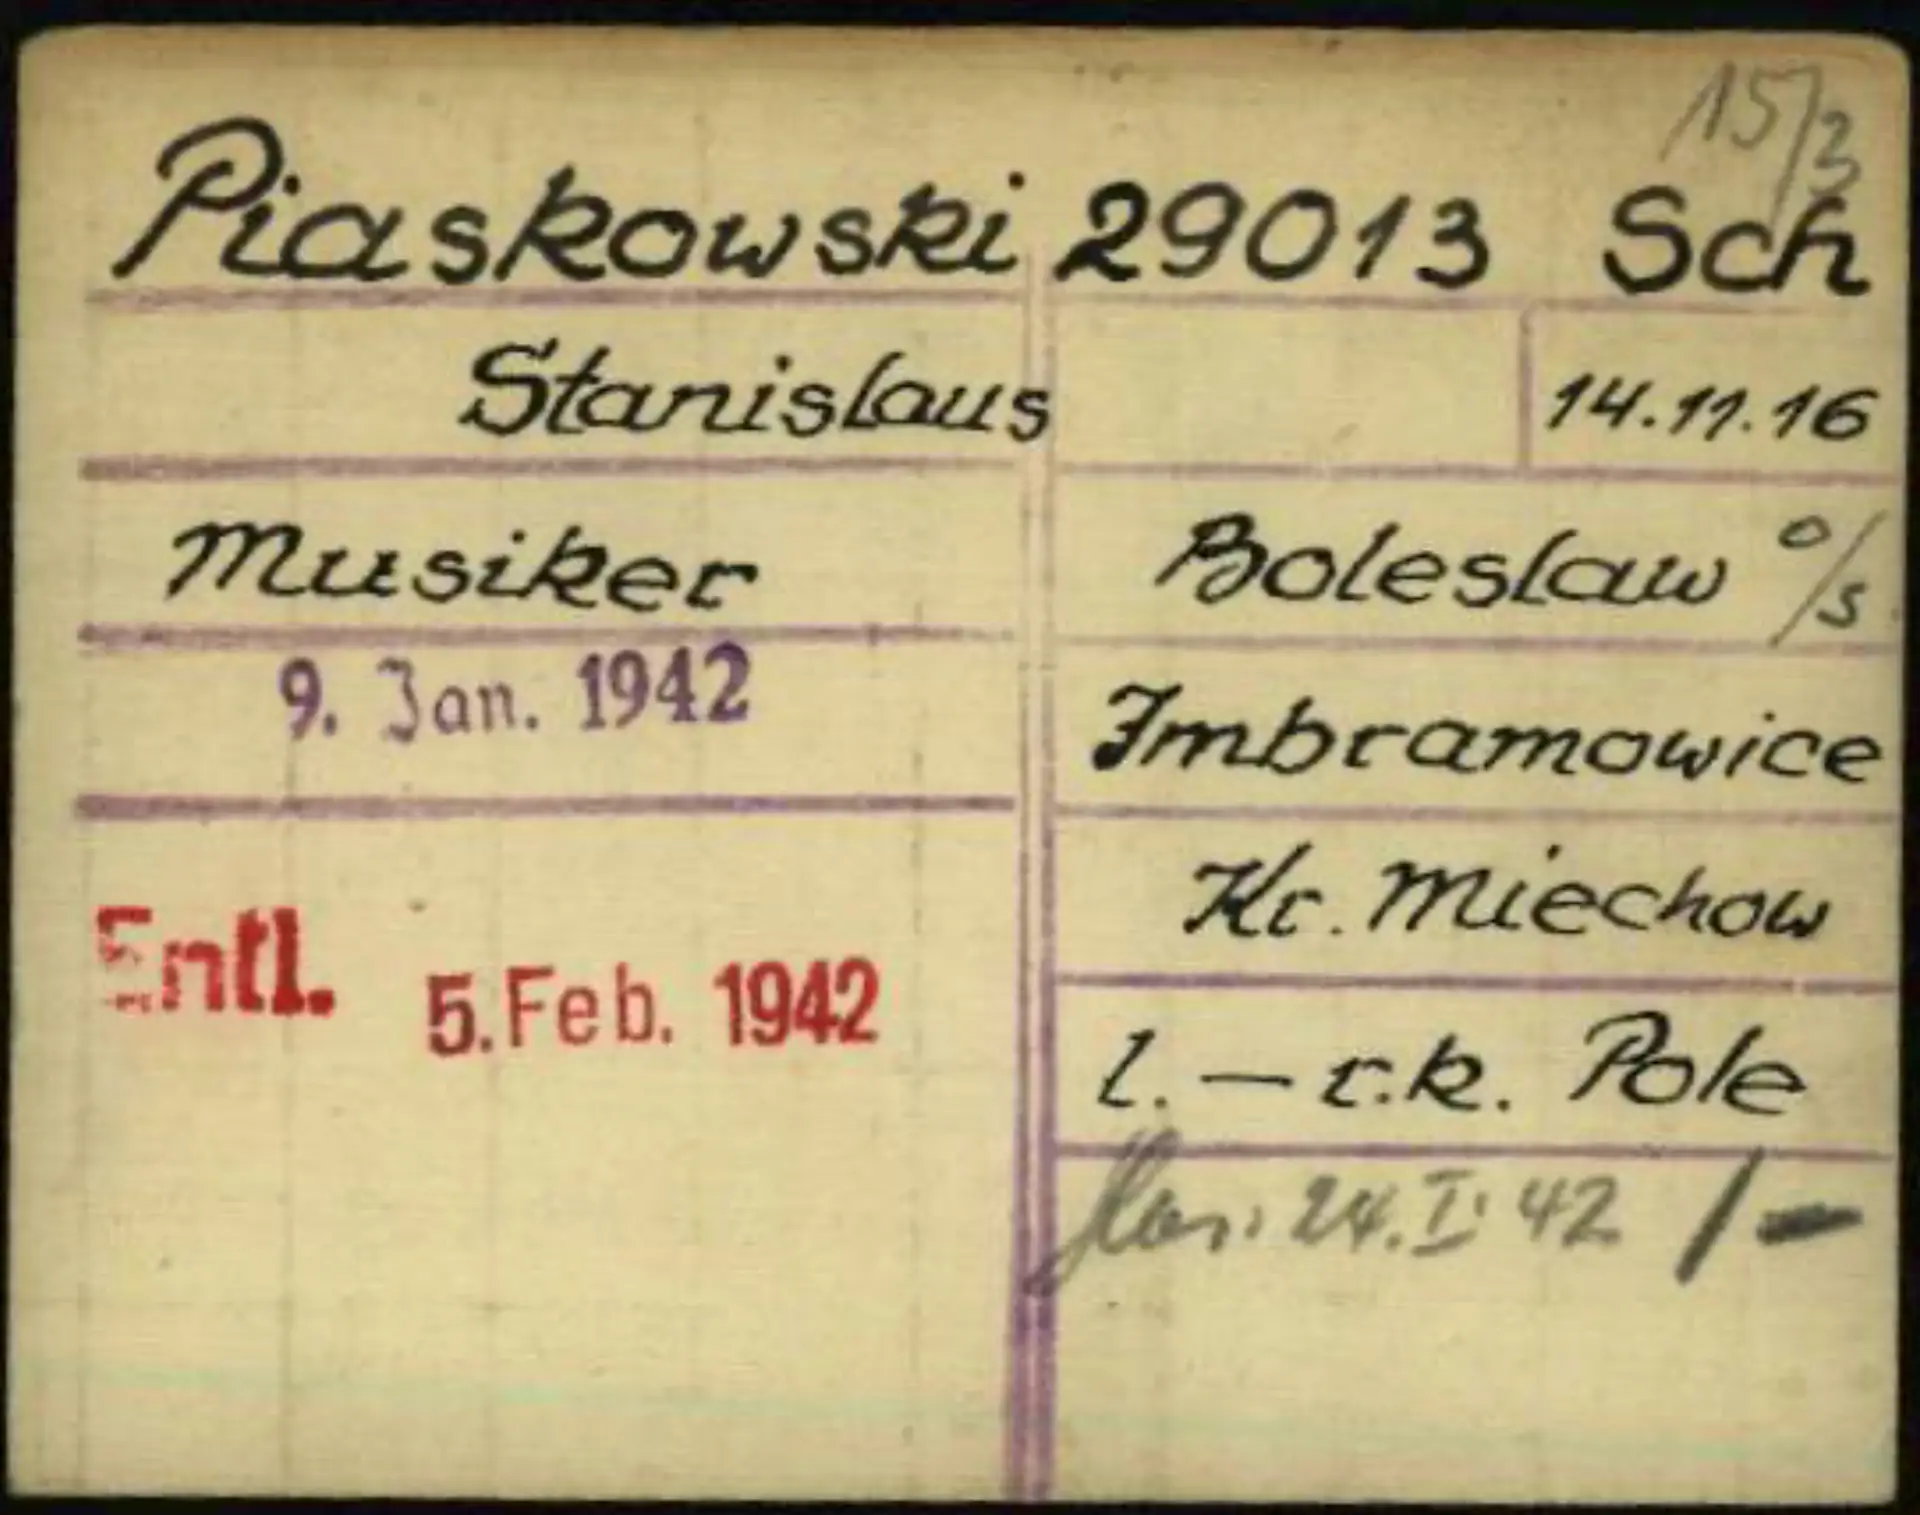 15/3
Piaskowski 29013 Sch
Stanislaus 14.11.16
Musiker Boleslaw o/s
9. Jan. 1942 Imbramowice
Kr. Miechow
Entl. 5. Feb. 1942
l. — r.k. Pole
24. I. 42 / —